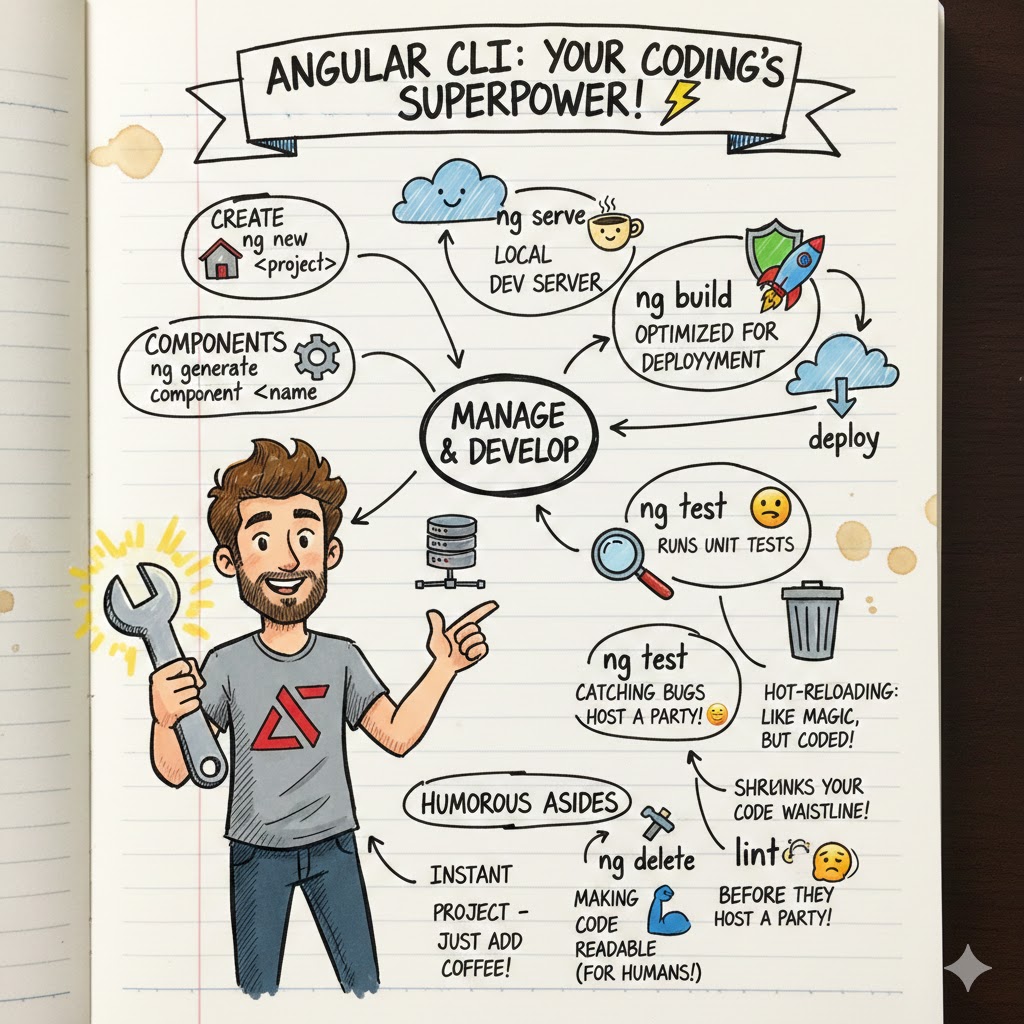 ANGULAR CLI: YOUR CODING'S
SUPERPOWER!
CREATE
ng new
<project>
ng serve
LOCAL
DEV SERVER
ng build
OPTIMIZED FOR
DEPLOYYMENT
COMPONENTS
ng generate
component <name
MANAGE
& DEVELOP
deploy
ng test
RUNS UNIT TESTS
ng test
CATCHING BUGS
HOST A PARTY!
HOT-RELOADING:
LIKE MAGIC,
BUT CODED!
SHRUNKS YOUR
CODE WAISTLINE!
HUMOROUS ASIDES
INSTANT
PROJECT –
JUST ADD
COFFEE!
ng delete
MAKING
CODE
READABLE
(FOR HUMANS!)
lint
BEFORE THEY
HOST A PARTY!